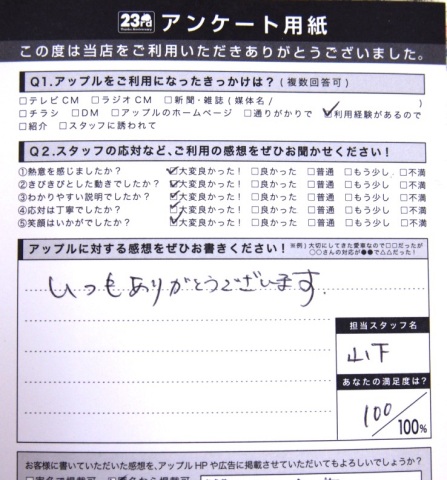 23rd アンケート用紙
この度は当店をご利用いただきありがとうございました。
Q1.アップルをご利用になったきっかけは?(複数回答可)
□テレビCM □ラジオCM □新聞・雑誌(媒体名/ )
□チラシ □DM □アップルのホームページ □通りがかりで ☑利用経験があるので
□紹介 □スタッフに誘われて
Q2.スタッフの応対など、ご利用の感想をぜひお聞かせください!
①熱意を感じましたか? ☑大変良かった! □良かった □普通 □もう少し □不満
②きびきびとした動きでしたか? ☑大変良かった! □良かった □普通 □もう少し □不満
③わかりやすい説明でしたか? ☑大変良かった! □良かった □普通 □もう少し □不満
④応対は丁寧でしたか? ☑大変良かった! □良かった □普通 □もう少し □不満
⑤笑顔はいかがでしたか? ☑大変良かった! □良かった □普通 □もう少し □不満
アップルに対する感想をぜひお書きください! ※例)大切にしてきた愛車なので□□だったが
○○さんの対応が●●で△△だった!
いつもありがとうございます.
担当スタッフ名
山下
あなたの満足度は?
100/100%
お客様に書いていただいた感想を、アップルHPや広告に掲載させていただいてもよろしいでしょうか?